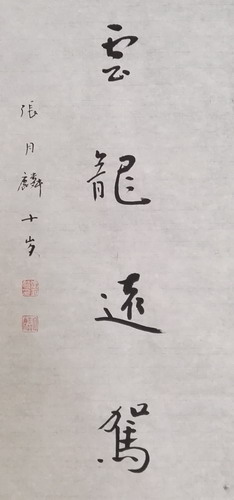 雲龍遠駕
張月麟十岁